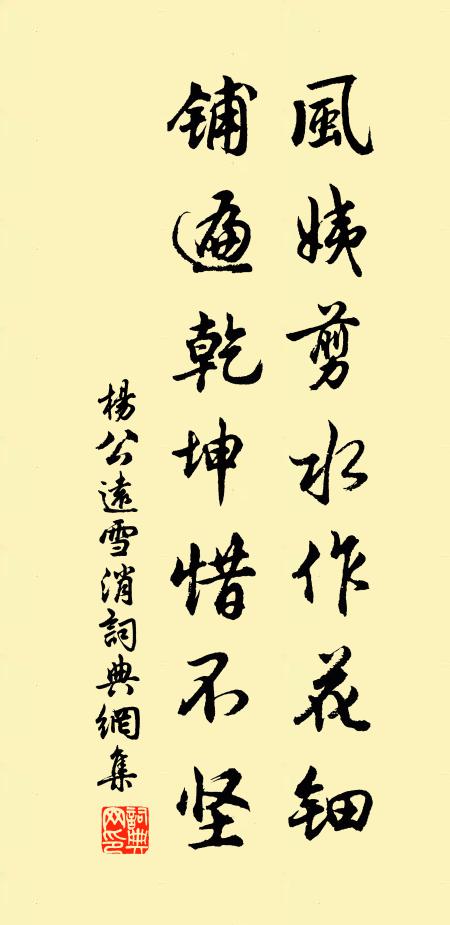 風姨剪水作花钿
铺遍乾坤惜不坚
楊公遠雪消詞典網集
詞典网印